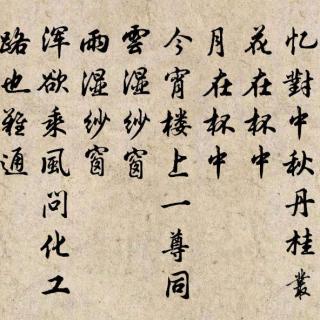 忆對中秋丹桂叢
花在杯中
月在杯中
今宵楼上一尊同
雲湿纱窗
雨湿纱窗
浑欲乘風问化工
路也難通